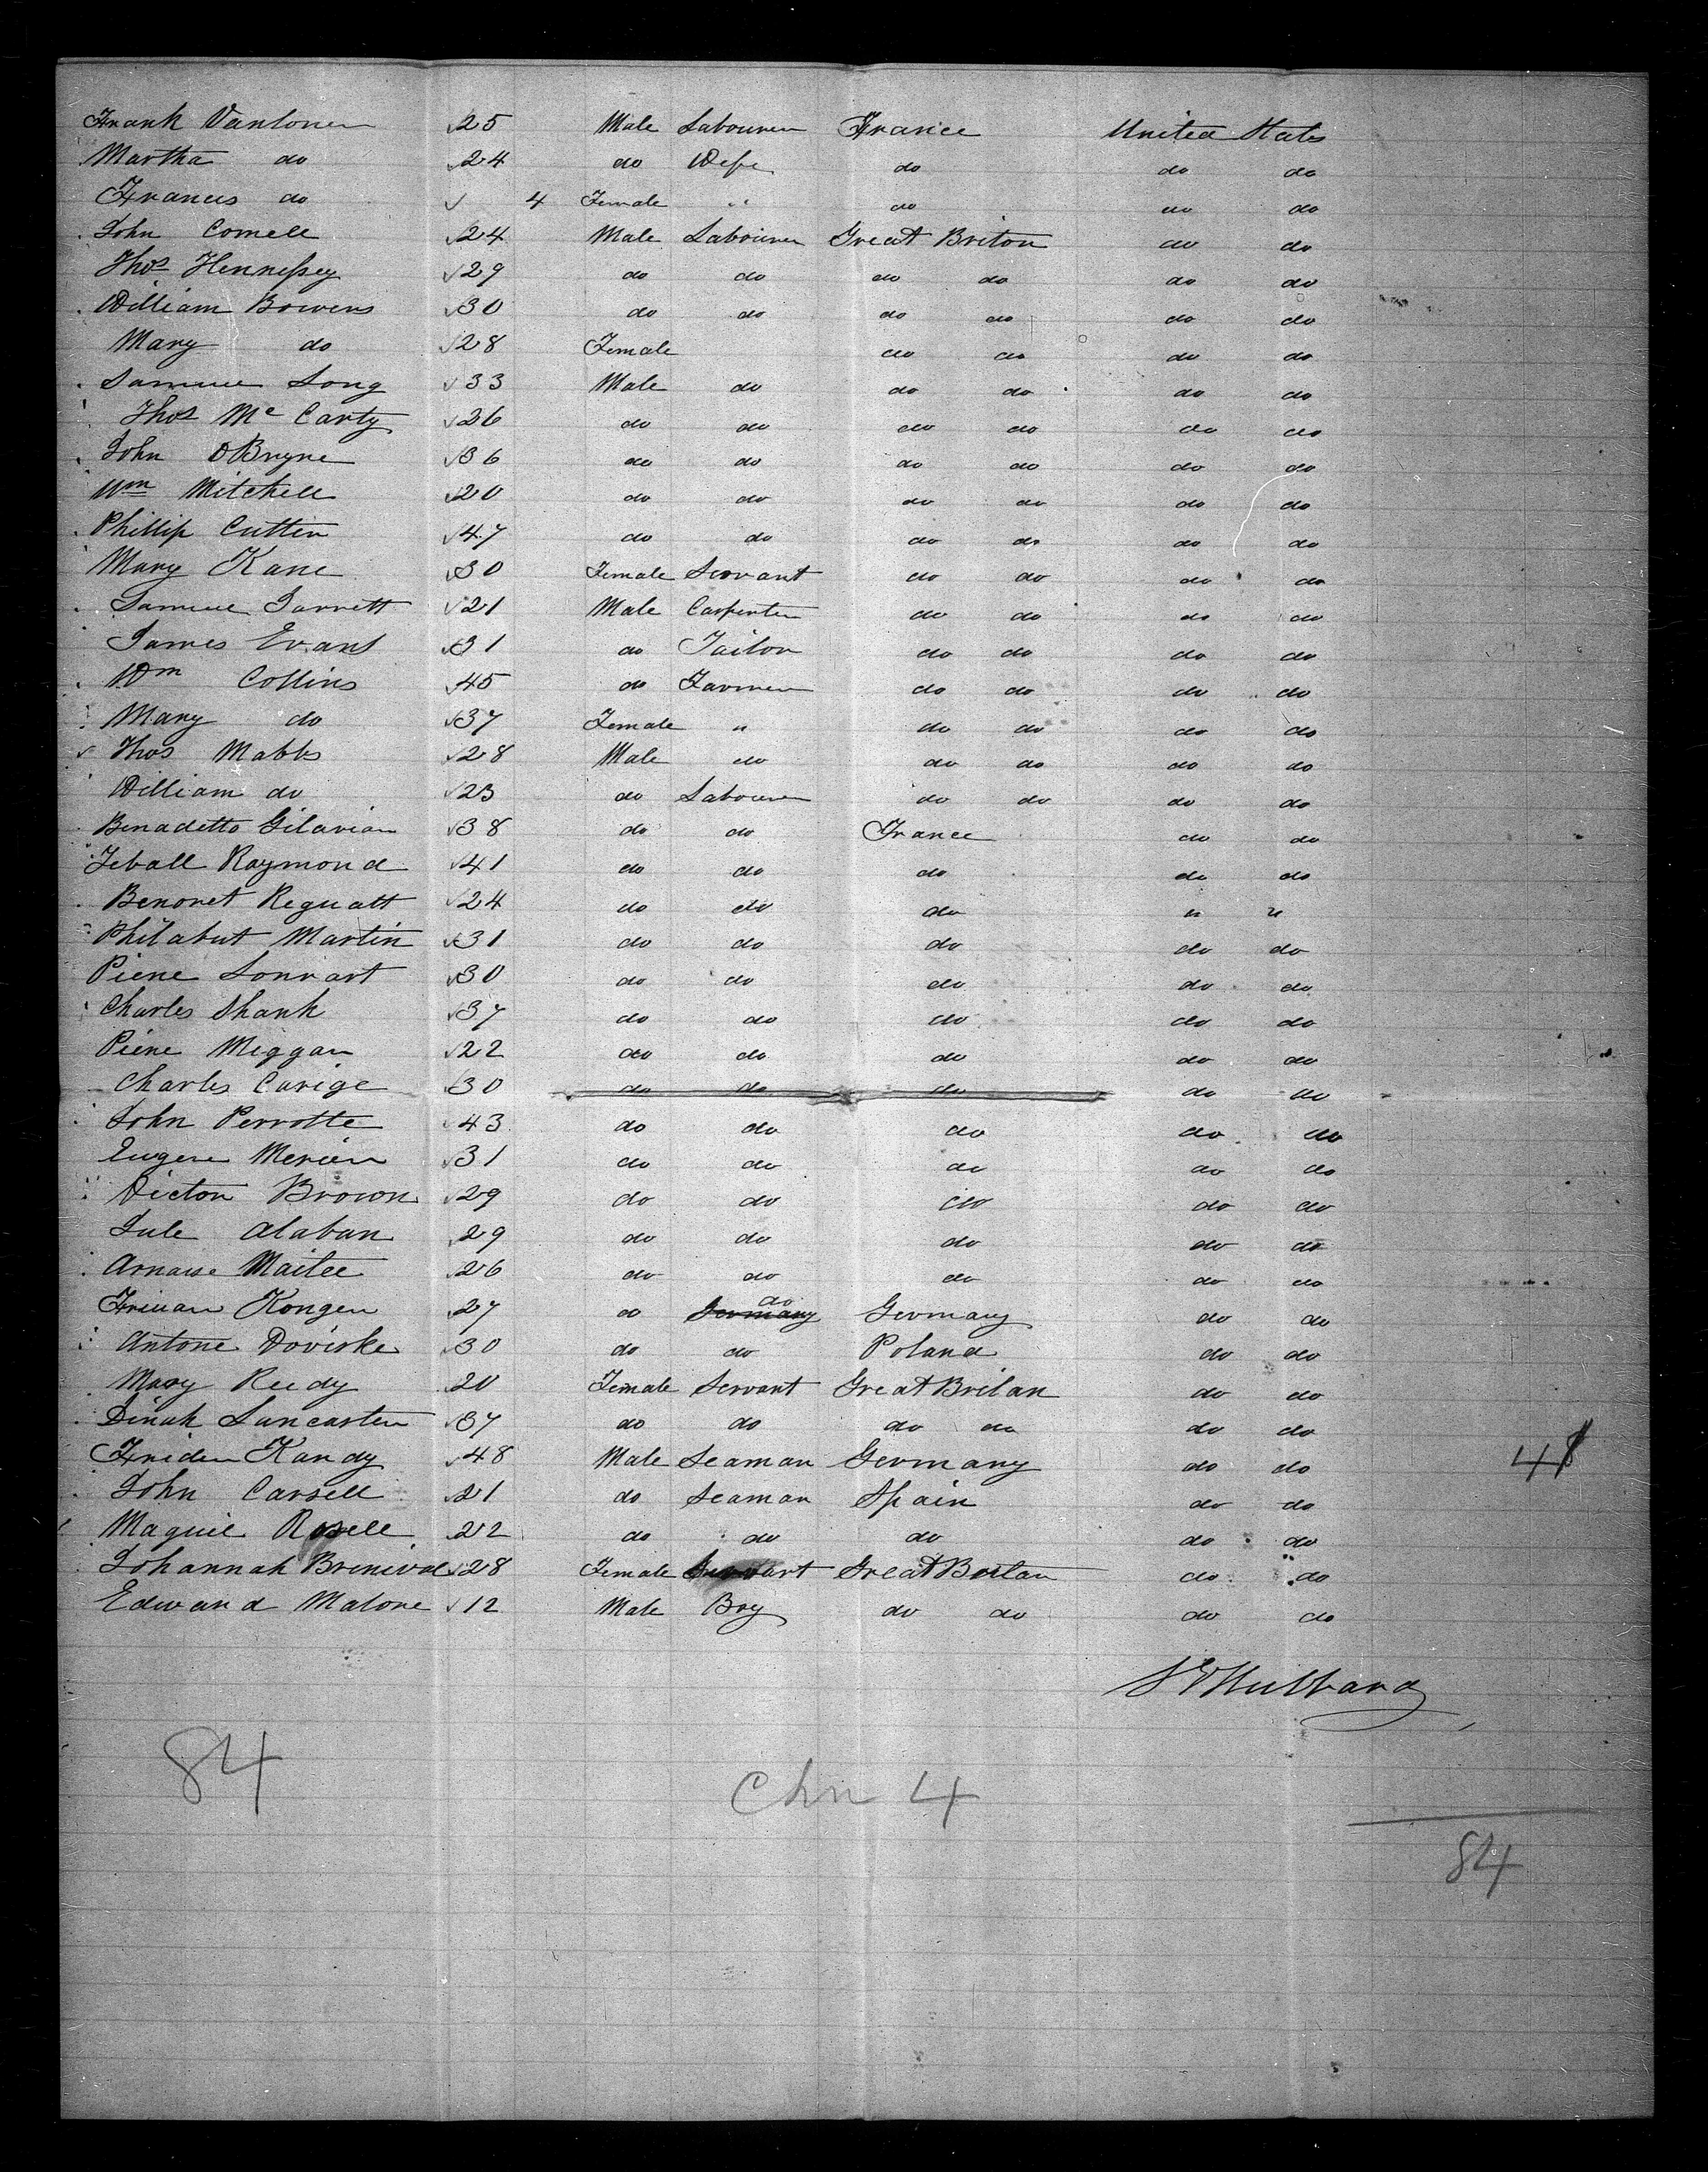 Frank Vantonen 25 Male Labourer France United States
Martha do 24 do Wife do do do
Frances do 4 Female " do do do
John Cornell 24 Male Labourer Great Briton do do
Thos Hennessey 29 do do do do do do
William Bowens 30 do do do do do do
Mary do 28 Female do do do do
Samuel Long 33 Male do do do do do
Thos Mc Carty 26 do do do do do do
John OBryne 36 do do do do do do
Wm Mitchell 20 do do do do do do
Phillip Cutten 47 do do do do do do
Mary Kane 30 Female Servant do do do do
Samuel Jarrett 21 Male Carpenter do do do do
James Evans 31 do Tailor do do do do
Wm Collins 45 do Farmer do do do do
Mary do 37 Female " do do do do
Thos Mabbs 28 Male do do do do do
William do 23 do Labourer do do do do
Benadetto Gilavian 38 do do France do do
Jeball Raymond 41 do do do do do
Benonet Reguatt 24 do do do " "
Philabut Martin 31 do do do do do
Piene Sonrart 30 do do do do do
Charles Shank 37 do do do do do
Piene Miggan 22 do do do do do
Charles Carige 30 do do do do do
John Perrotte 43 do do do do do
Eugene Merien 31 do do do do do
Victor Brown 29 do do do do do
Jule Alaban 29 do do do do do
Arnause Mailee 26 do do do do do
Kongen 27 do Germany do Germany do do
Antone Doviske 30 do do Poland do do
Mary Reedy 20 Female Servant Great Britan do do
Dinah Lancaster 37 do do do do do do
Kandy 48 Male Seaman Germany do do
John Carsell 21 do Seaman Spain do do
Maguie Rosell 22 do do do do do
Johannah 28 Female Servant Great Britan do do
Edward Malone 12 Male Boy do do do do
48
Hulbard
84
Chn 4
84